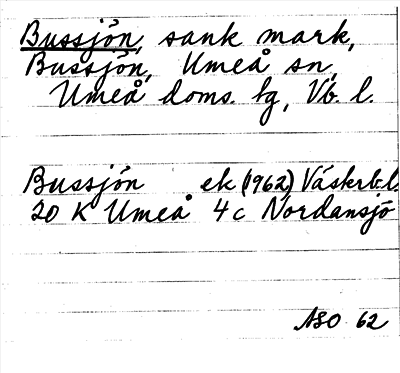 Bussjön, sank mark,
Bussjön, Umeå sn,
Umeå doms. hg, Vb. l.
Bussjön ek (1962) Västerb.l.
20 K Umeå 4 c Nordansjö
ASO 62